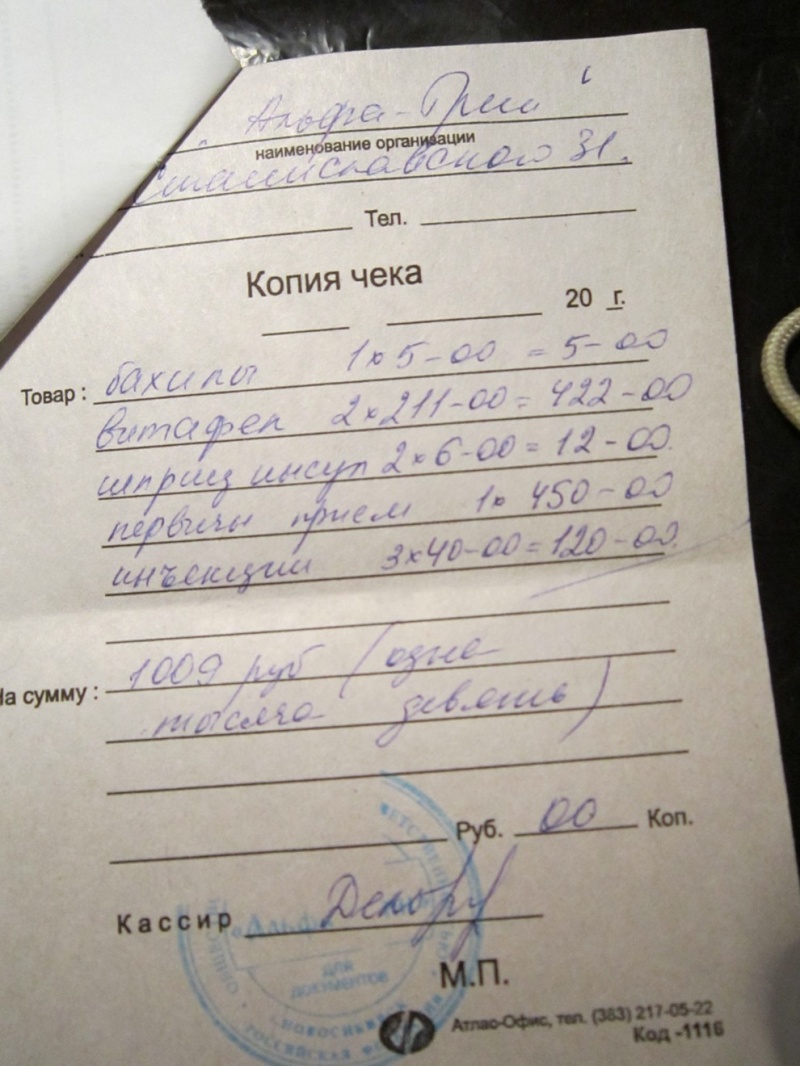 Альфа-Грин
наименование организации
Станиславского 31.
Тел.
Копия чека
20 г.
Товар : бахилы 1х5-00 = 5-00
витафел 2х211-00 = 422-00
шприц инсул 2х6-00 = 12-00.
первичн прием 1х 450-00
инъекции 3х40-00 = 120-00.
На сумму : 1009 руб (одна
тысяча девять)
Руб. 00 Коп.
Кассир
«Альфа
ДЛЯ
ДОКУМЕНТОВ
НОВОСИБИРСК
РОССИЙСКАЯ
М.П.
Атлас-Офис, тел. (383) 217-05-22
Код -1116